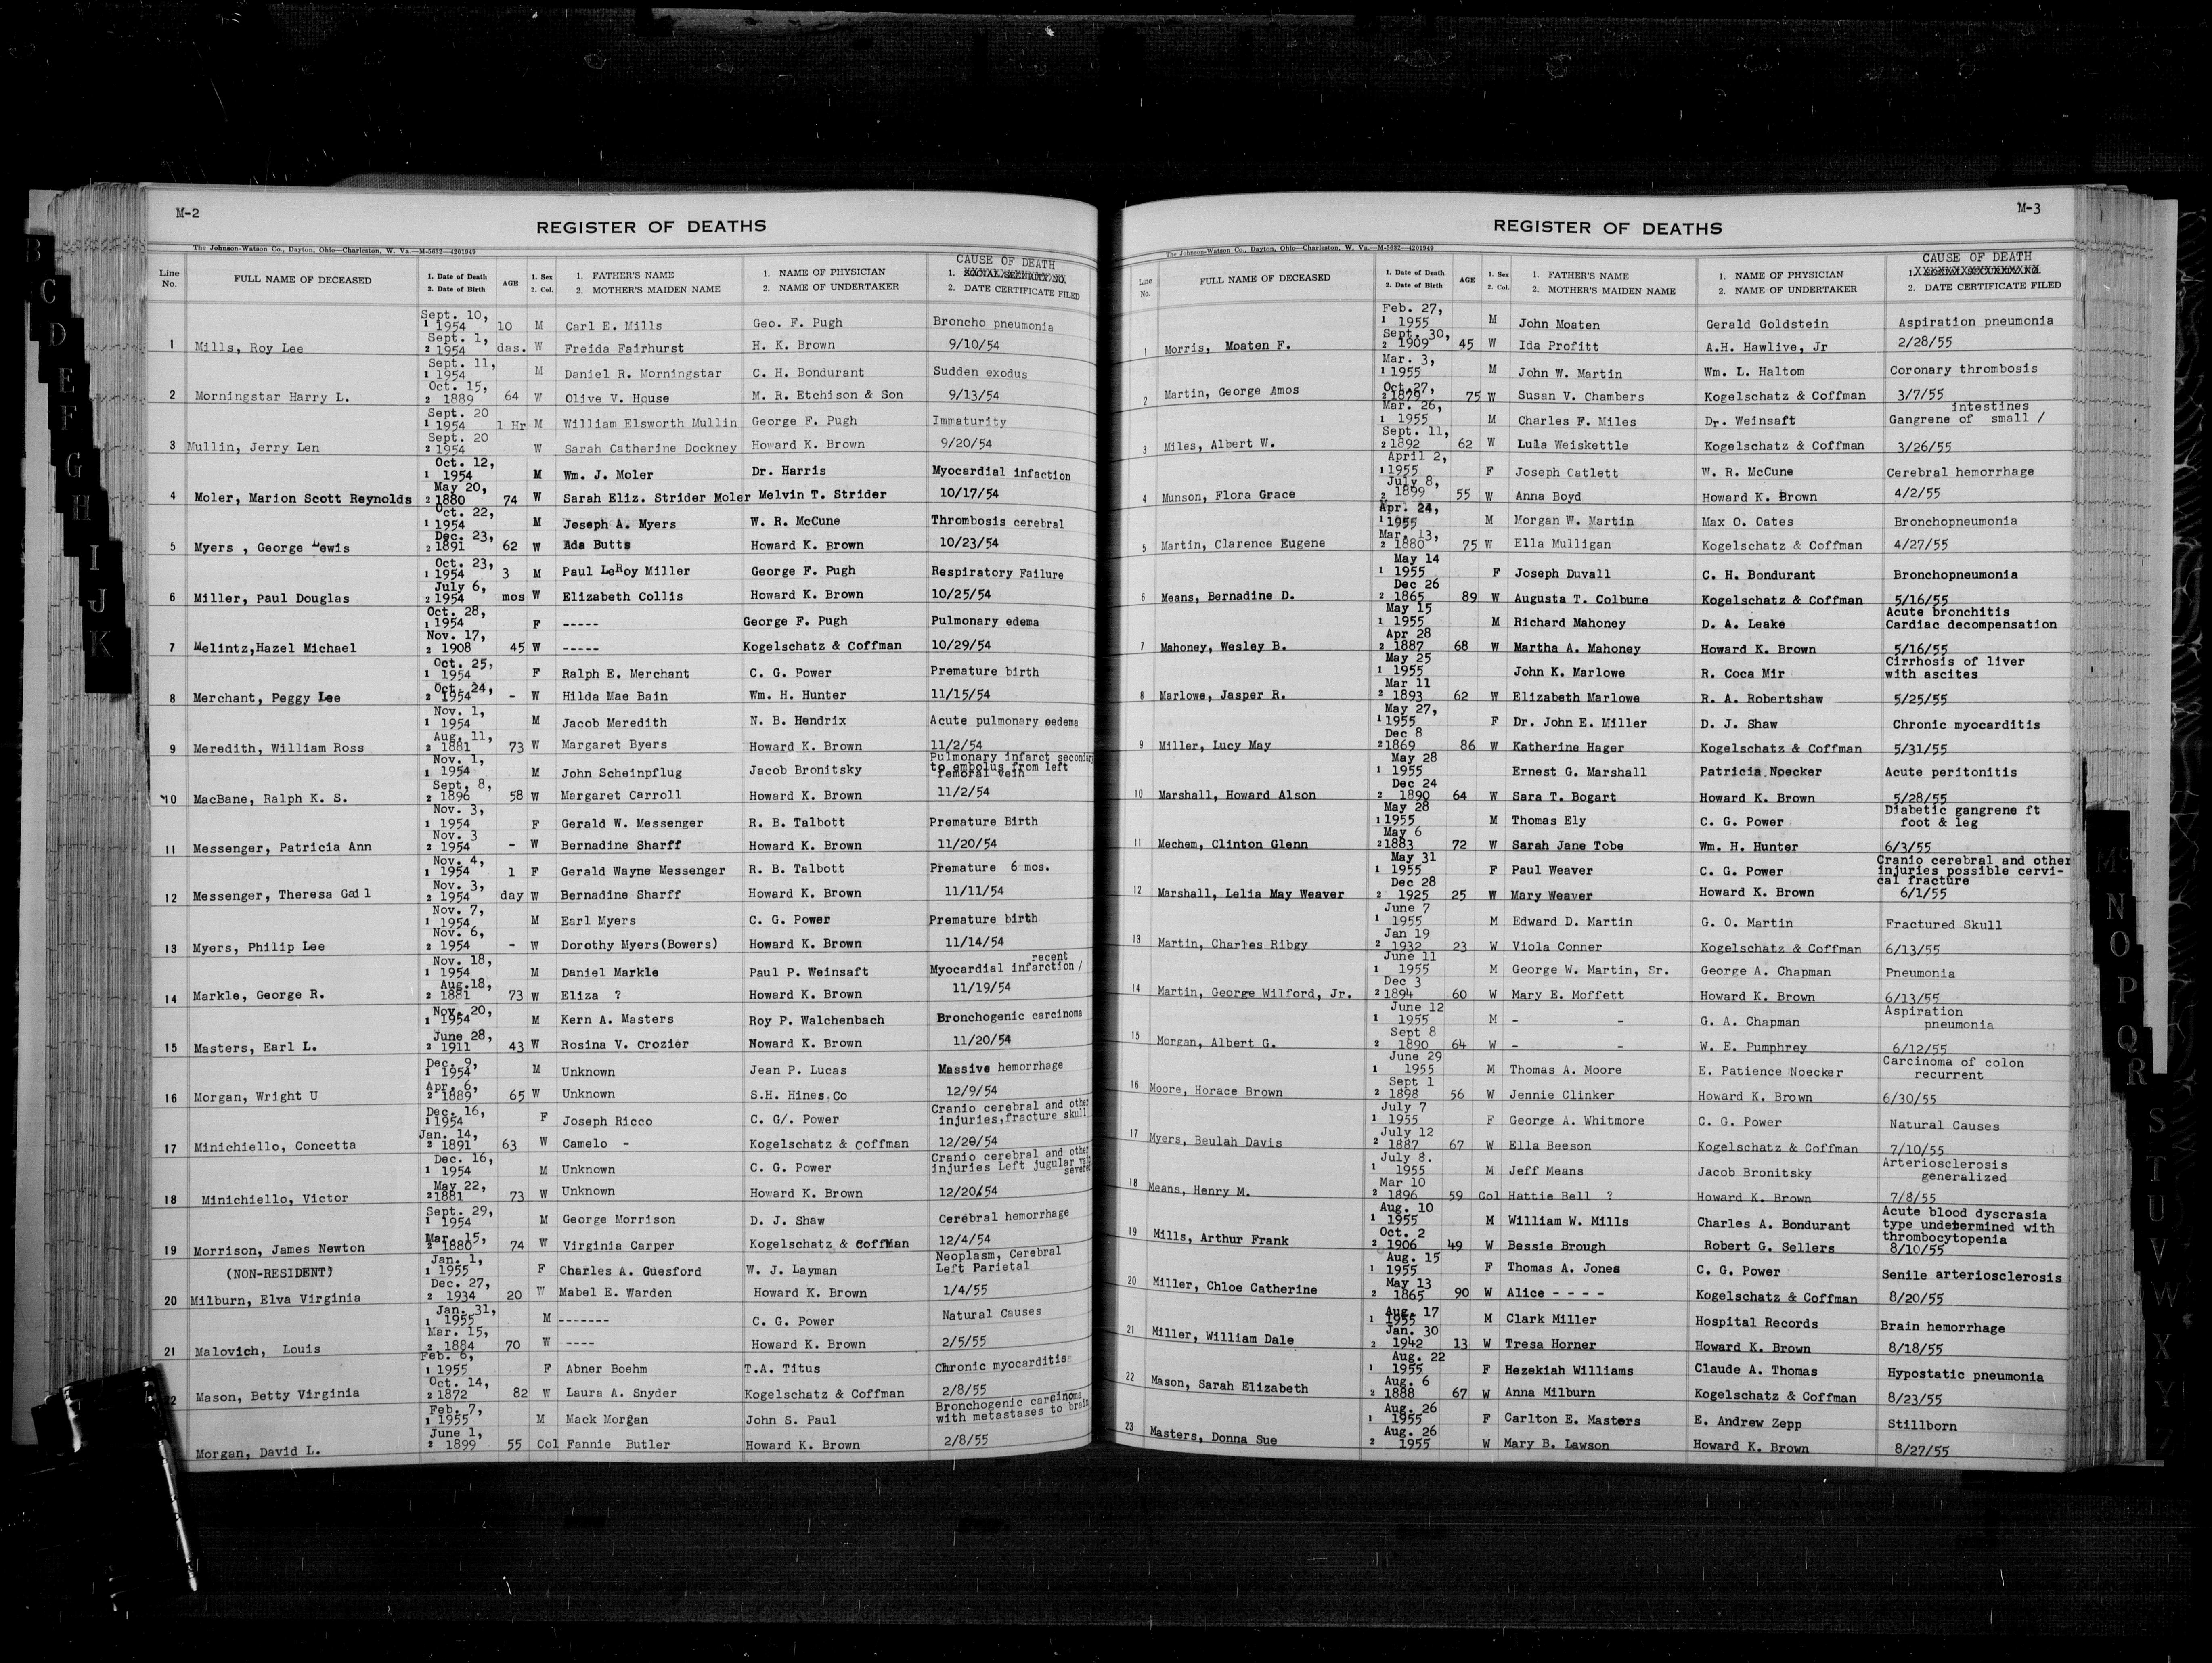 M-2
REGISTER OF DEATHS
The Johnson-Watson Co., Dayton, Ohio—Charleston, W. Va.—M-5632—4201949
Line No. FULL NAME OF DECEASED 1. Date of Death 2. Date of Birth AGE 1. Sex 2. Col. 1. FATHER'S NAME 2. MOTHER'S MAIDEN NAME 1. NAME OF PHYSICIAN 2. NAME OF UNDERTAKER CAUSE OF DEATH 1. 2. DATE CERTIFICATE FILED
Sept. 10,
1 1954 10 M Carl E. Mills Geo. F. Pugh Broncho pneumonia
Sept. 1,
1 Mills, Roy Lee 2 1954 das. W Freida Fairhurst H. K. Brown 9/10/54
Sept. 11,
1 1954 M Daniel R. Morningstar C. H. Bondurant Sudden exodus
Oct. 15,
2 Morningstar Harry L. 2 1889 64 W Olive V. House M. R. Etchison & Son 9/13/54
Sept. 20
1 1954 1 Hr M William Elsworth Mullin George F. Pugh Immaturity
Sept. 20
3 Mullin, Jerry Len 2 1954 W Sarah Catherine Dockney Howard K. Brown 9/20/54
Oct. 12,
1 1954 M Wm. J. Moler Dr. Harris Myocardial infaction
May 20,
4 Moler, Marion Scott Reynolds 2 1880 74 W Sarah Eliz. Strider Moler Melvin T. Strider 10/17/54
Oct. 22,
1 1954 M Joseph A. Myers W. R. McCune Thrombosis cerebral
Dec. 23,
5 Myers , George Lewis 2 1891 62 W Ada Butts Howard K. Brown 10/23/54
Oct. 23,
1 1954 3 M Paul LeRoy Miller George F. Pugh Respiratory Failure
July 6,
6 Miller, Paul Douglas 2 1954 mos W Elizabeth Collis Howard K. Brown 10/25/54
Oct. 28,
1 1954 F ----- George F. Pugh Pulmonary edema
Nov. 17,
7 Melintz,Hazel Michael 2 1908 45 W ----- Kogelschatz & Coffman 10/29/54
Oct. 25,
1 1954 F Ralph E. Merchant C. G. Power Premature birth
Oct. 24,
8 Merchant, Peggy Lee 2 1954 - W Hilda Mae Bain Wm. H. Hunter 11/15/54
Nov. 1,
1 1954 M Jacob Meredith N. B. Hendrix Acute pulmonary oedema
Aug. 11,
9 Meredith, William Ross 2 1881 73 W Margaret Byers Howard K. Brown 11/2/54
Nov. 1, Pulmonary infarct secondary
1 1954 M John Scheinpflug Jacob Bronitsky to embolus from left femoral vein
Sept. 8,
10 MacBane, Ralph K. S. 2 1896 58 W Margaret Carroll Howard K. Brown 11/2/54
Nov. 3,
1 1954 F Gerald W. Messenger R. B. Talbott Premature Birth
Nov. 3
11 Messenger, Patricia Ann 2 1954 - W Bernadine Sharff Howard K. Brown 11/20/54
Nov. 4,
1 1954 1 F Gerald Wayne Messenger R. B. Talbott Premature 6 mos.
Nov. 3,
12 Messenger, Theresa Gail 2 1954 day W Bernadine Sharff Howard K. Brown 11/11/54
Nov. 7,
1 1954 M Earl Myers C. G. Power Premature birth
Nov. 6,
13 Myers, Philip Lee 2 1954 - W Dorothy Myers(Bowers) Howard K. Brown 11/14/54
Nov. 18, recent
1 1954 M Daniel Markle Paul P. Weinsaft Myocardial infarction/
Aug.18,
14 Markle, George R. 2 1881 73 W Eliza ? Howard K. Brown 11/19/54
Nov. 20,
1 1954 M Kern A. Masters Roy P. Walchenbach Bronchogenic carcinoma
June 28,
15 Masters, Earl L. 2 1911 43 W Rosina V. Crozier Noward K. Brown 11/20/54
Dec. 9,
1 1954 M Unknown Jean P. Lucas Massive hemorrhage
Apr. 6,
16 Morgan, Wright U 2 1889 65 W Unknown S.H. Hines Co 12/9/54
Dec. 16, Cranio cerebral and other
1 1954 F Joseph Ricco C. G/. Power injuries,fracture skull
Jan. 14,
17 Minichiello, Concetta 2 1891 63 W Camelo - Kogelschatz & Coffman 12/20/54
Dec. 16, Cranio cerebral and other
1 1954 M Unknown C. G. Power injuries Left jugular
May 22,
18 Minichiello, Victor 2 1881 73 W Unknown Howard K. Brown 12/20/54
Sept. 29,
1 1954 M George Morrison D. J. Shaw Cerebral hemorrhage
Mar. 15,
19 Morrison, James Newton 2 1880 74 W Virginia Carper Kogelschatz & Coffman 12/4/54
Jan. 1, Neoplasm, Cerebral
(NON-RESIDENT) 1 1955 F Charles A. Guesford W. J. Layman Left Parietal
Dec. 27,
20 Milburn, Elva Virginia 2 1934 20 W Mabel E. Warden Howard K. Brown 1/4/55
Jan. 31,
1 1955 M ------- C. G. Power Natural Causes
Mar. 15,
21 Malovich, Louis 2 1884 70 W ---- Howard K. Brown 2/5/55
Feb. 6,
1 1955 F Abner Boehm T.A. Titus Chronic myocarditis
Oct. 14,
2 Mason, Betty Virginia 2 1872 82 W Laura A. Snyder Kogelschatz & Coffman 2/8/55
Feb. 7, Bronchogenic carcinoma
1 1955 M Mack Morgan John S. Paul with metastases to brain
June 1,
Morgan, David L. 2 1899 55 Col Fannie Butler Howard K. Brown 2/8/55
M-3
REGISTER OF DEATHS
The Johnson-Watson Co., Dayton, Ohio—Charleston, W. Va.—M-5632—4201949
Line No. FULL NAME OF DECEASED 1. Date of Death 2. Date of Birth AGE 1. Sex 2. Col. 1. FATHER'S NAME 2. MOTHER'S MAIDEN NAME 1. NAME OF PHYSICIAN 2. NAME OF UNDERTAKER CAUSE OF DEATH 1. 2. DATE CERTIFICATE FILED
Feb. 27,
1 1955 M John Moaten Gerald Goldstein Aspiration pneumonia
Sept. 30,
1 Morris, Moaten F. 2 1909 45 W Ida Profitt A.H. Hawlive, Jr 2/28/55
Mar. 3,
1 1955 M John W. Martin Wm. L. Haltom Coronary thrombosis
Oct.27,
2 Martin, George Amos 2 1879 75 W Susan V. Chambers Kogelschatz & Coffman 3/7/55
Mar. 26, intestines
1 1955 M Charles F. Miles Dr. Weinsaft Gangrene of small /
Sept. 11,
3 Miles, Albert W. 2 1892 62 W Lula Weiskettle Kogelschatz & Coffman 3/26/55
April 2,
1 1955 F Joseph Catlett W. R. McCune Cerebral hemorrhage
July 8,
4 Munson, Flora Grace 2 1899 55 W Anna Boyd Howard K. Brown 4/2/55
Apr. 24,
1 1955 M Morgan W. Martin Max O. Oates Bronchopneumonia
Mar. 13,
5 Martin, Clarence Eugene 2 1880 75 W Ella Mulligan Kogelschatz & Coffman 4/27/55
May 14
1 1955 F Joseph Duvall C. H. Bondurant Bronchopneumonia
Dec 26
6 Means, Bernadine D. 2 1865 89 W Augusta T. Colbume Kogelschatz & Coffman 5/16/55
May 15 Acute bronchitis
1 1955 M Richard Mahoney D. A. Leake Cardiac decompensation
Apr 28
7 Mahoney, Wesley B. 2 1887 68 W Martha A. Mahoney Howard K. Brown 5/16/55
May 25 Cirrhosis of liver
1 1955 John K. Marlowe R. Coca Mir with ascites
Mar 11
8 Marlowe, Jasper R. 2 1893 62 W Elizabeth Marlowe R. A. Robertshaw 5/25/55
May 27,
1 1955 F Dr. John E. Miller D. J. Shaw Chronic myocarditis
Dec 8
9 Miller, Lucy May 2 1869 86 W Katherine Hager Kogelschatz & Coffman 5/31/55
May 28
1 1955 Ernest G. Marshall Patricia Noecker Acute peritonitis
Dec 24
10 Marshall, Howard Alson 2 1890 64 W Sara T. Bogart Howard K. Brown 5/28/55
May 28 Diabetic gangrene ft
1 1955 M Thomas Ely C. G. Power foot & leg
May 6
11 Mechem, Clinton Glenn 2 1883 72 W Sarah Jane Tobe Wm. H. Hunter 6/3/55
May 31 Cranio cerebral and other
1 1955 F Paul Weaver C. G. Power injuries possible cervi-
Dec 28 cal fracture
12 Marshall, Lelia May Weaver 2 1925 25 W Mary Weaver Howard K. Brown 6/1/55
June 7
1 1955 M Edward D. Martin G. O. Martin Fractured Skull
Jan 19
13 Martin, Charles Ribgy 2 1932 23 W Viola Conner Kogelschatz & Coffman 6/13/55
June 11
1 1955 M George W. Martin, Sr. George A. Chapman Pneumonia
Dec 3
14 Martin, George Wilford, Jr. 2 1894 60 W Mary E. Moffett Howard K. Brown 6/13/55
June 12 Aspiration
1 1955 M - - G. A. Chapman pneumonia
Sept 8
15 Morgan, Albert G. 2 1890 64 W - - W. E. Pumphrey 6/12/55
June 29 Carcinoma of colon
1 1955 M Thomas A. Moore E. Patience Noecker recurrent
Sept 1
16 Moore, Horace Brown 2 1898 56 W Jennie Clinker Howard K. Brown 6/30/55
July 7
1 1955 F George A. Whitmore C. G. Power Natural Causes
July 12
17 Myers, Beulah Davis 2 1887 67 W Ella Beeson Kogelschatz & Coffman 7/10/55
July 8. Arteriosclerosis
1 1955 M Jeff Means Jacob Bronitsky generalized
Mar 10
18 Means, Henry M. 2 1896 59 Col Hattie Bell ? Howard K. Brown 7/8/55
Aug. 10 Acute blood dyscrasia
1 1955 M William W. Mills Charles A. Bondurant type undetermined with
Oct. 2 thrombocytopenia
19 Mills, Arthur Frank 2 1906 49 W Bessie Brough Robert G. Sellers 8/10/55
Aug. 15
1 1955 F Thomas A. Jones C. G. Power Senile arteriosclerosis
May 13
20 Miller, Chloe Catherine 2 1865 90 W Alice - - - - Kogelschatz & Coffman 8/20/55
Aug. 17
1 1955 M Clark Miller Hospital Records Brain hemorrhage
Jan. 30
21 Miller, William Dale 2 1942 13 W Tresa Horner Howard K. Brown 8/18/55
Aug. 22
1 1955 F Hezekiah Williams Claude A. Thomas Hypostatic pneumonia
Aug. 6
22 Mason, Sarah Elizabeth 2 1888 67 W Anna Milburn Kogelschatz & Coffman 8/23/55
Aug. 26
1 1955 F Carlton E. Masters E. Andrew Zepp Stillborn
Aug. 26
23 Masters, Donna Sue 2 1955 W Mary B. Lawson Howard K. Brown 8/27/55
B
C
D
E
F
G
H
I
J
K
Mc
N
O
P
Q
R
S
T
U
V
W
X
Y